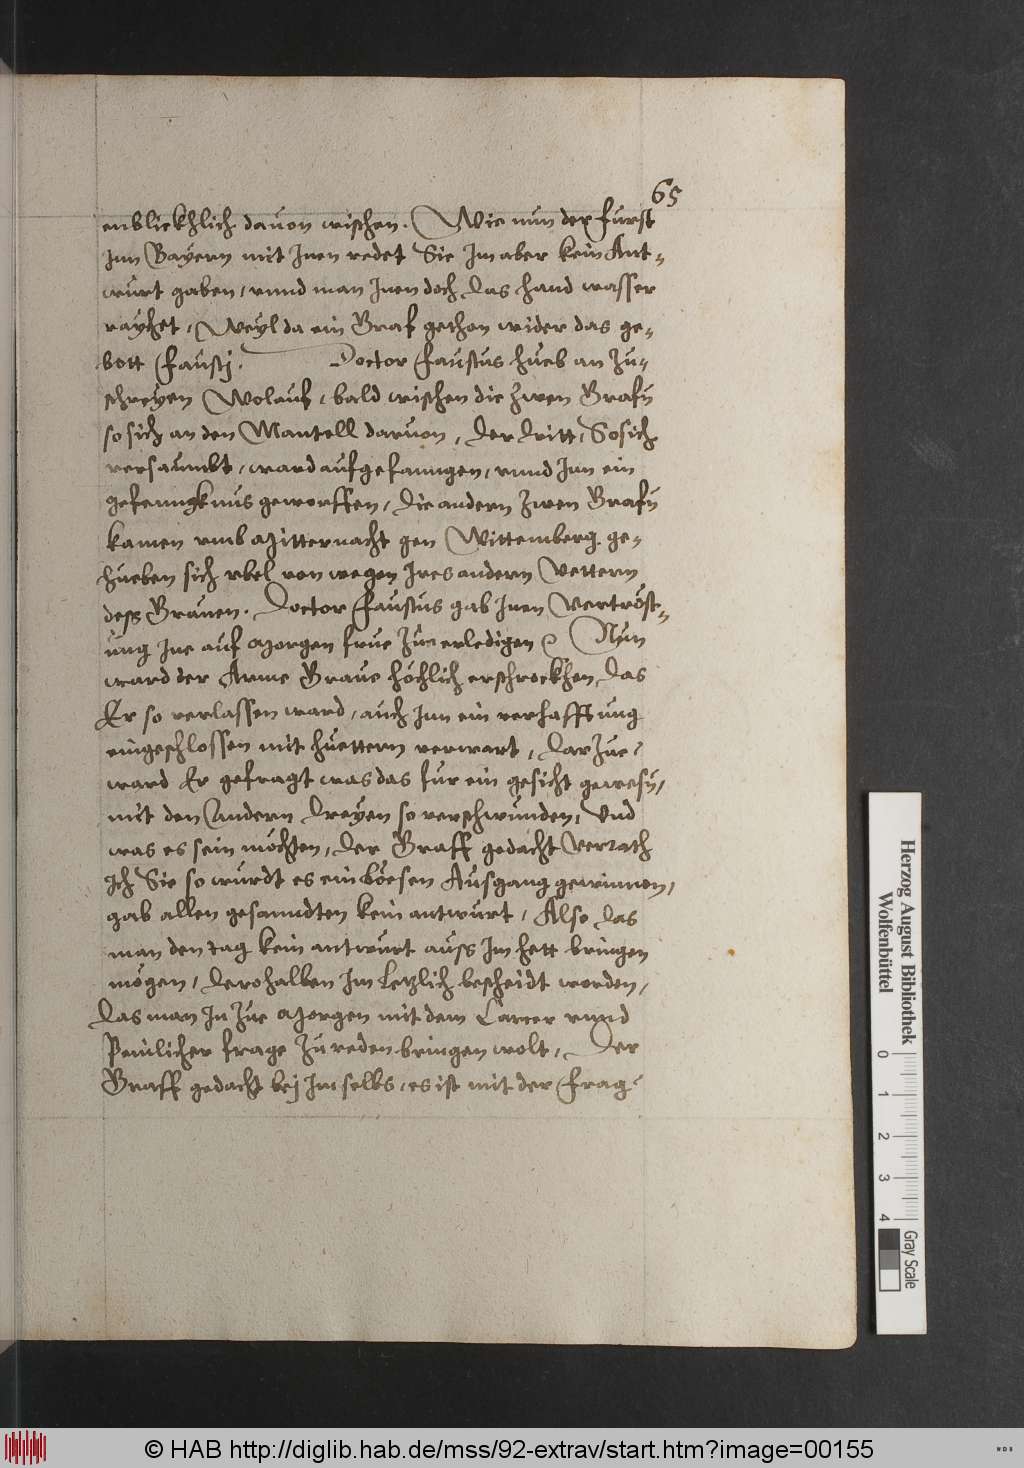 65
enblickhlich dauon wischen. Wie nun der Furst
Inn Bayern mit Inen redet Sie Im aber kein Ant-
wurt gaben, vnnd man Inen doch das hand wasser
raychet, Weyl da ein Graf gethon wider das ge-
bott Faustj. Doctor Faustus hueb an zu-
schreyen Wolauf, bald wischen die zwen Grafn
so sich an den Mantell daruon, der dritt, So sich
versaumbt, ward aufgefanngen, vnnd Inn ein
gefenngknus geworffen, die andern zwen Grafn
kamen vmb Mitternacht gen Wittemberg. ge-
hueben sich vbel von wegen Ires andern Vettern
dess Grauen. Doctor Faustus gab Inen Vertröst-
ung Ine auf Morgen frue zu erledigen Nun
ward der Arme Graue höchlich erschrockhen das
Er so verlassen ward, auch Inn ein verhafftung
eingeschlossen mit huettern verwart, darzue
ward Er gefragt was das fur ein gesicht gewesn,
mit den Andern dreyen so verschwunden, Vnd
was es sein möchten, der Graff gedacht verrath
Ich Sie so wurdt es ein böesen Ausgang gewinnen,
gab allen gesanndten kein antwurt, Also das
man den tag kein antwurt auss Im hett bringen
mögen, derohalben Im Letzlich bescheidt worden,
das man In zue Morgen mit dem Carcer vnnd
Peinlicher frage zu reden bringen wolt, Der
Graff gedacht bej Im selbs, es ist mit der Frag
Herzog August Bibliothek
Wolfenbüttel
0 1 2 3 4
Gray Scale
© HAB http://diglib.hab.de/mss/92-extrav/start.htm?image=00155
WDB